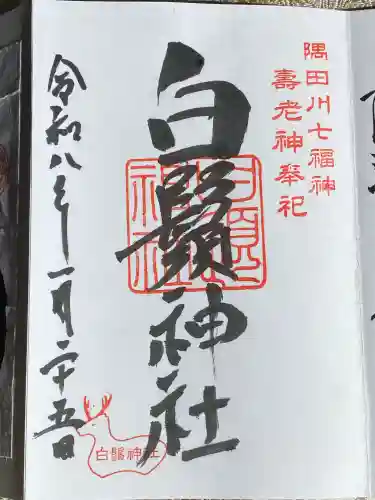 隅田川七福神
壽老神奉祀
白鬚神社
白鬚神社
令和八年一月二十五日
白鬚神社